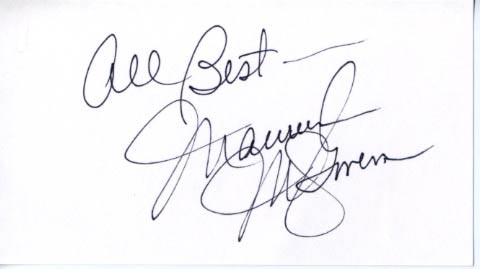 All Best —
Maureen
McGovern